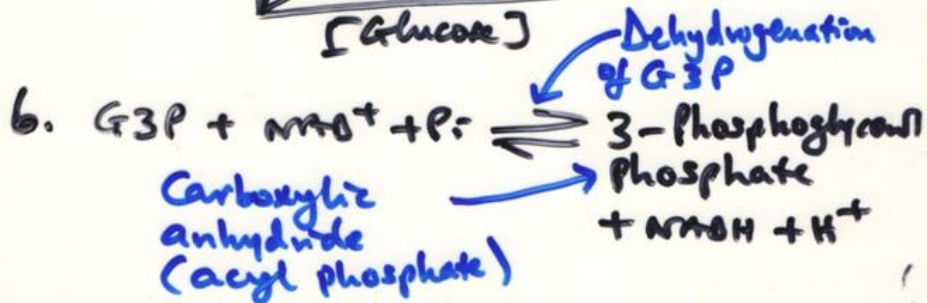 [Glucose]
Dehydrogenation
of G3P
6. G3P + NAD⁺ + Pi ⇌ 3-Phosphoglyceroyl
phosphate
+ NADH + H⁺
Carboxylic
anhydride
(acyl phosphate)